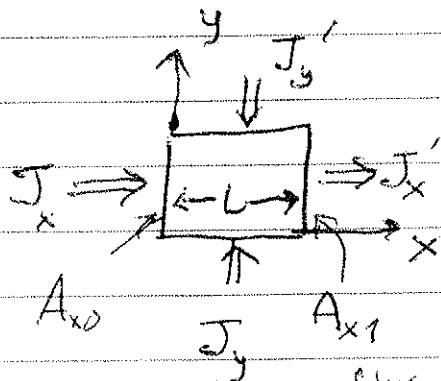 y
J_y'
J_x
L
J_x'
x
A_x0
A_x1
J_y